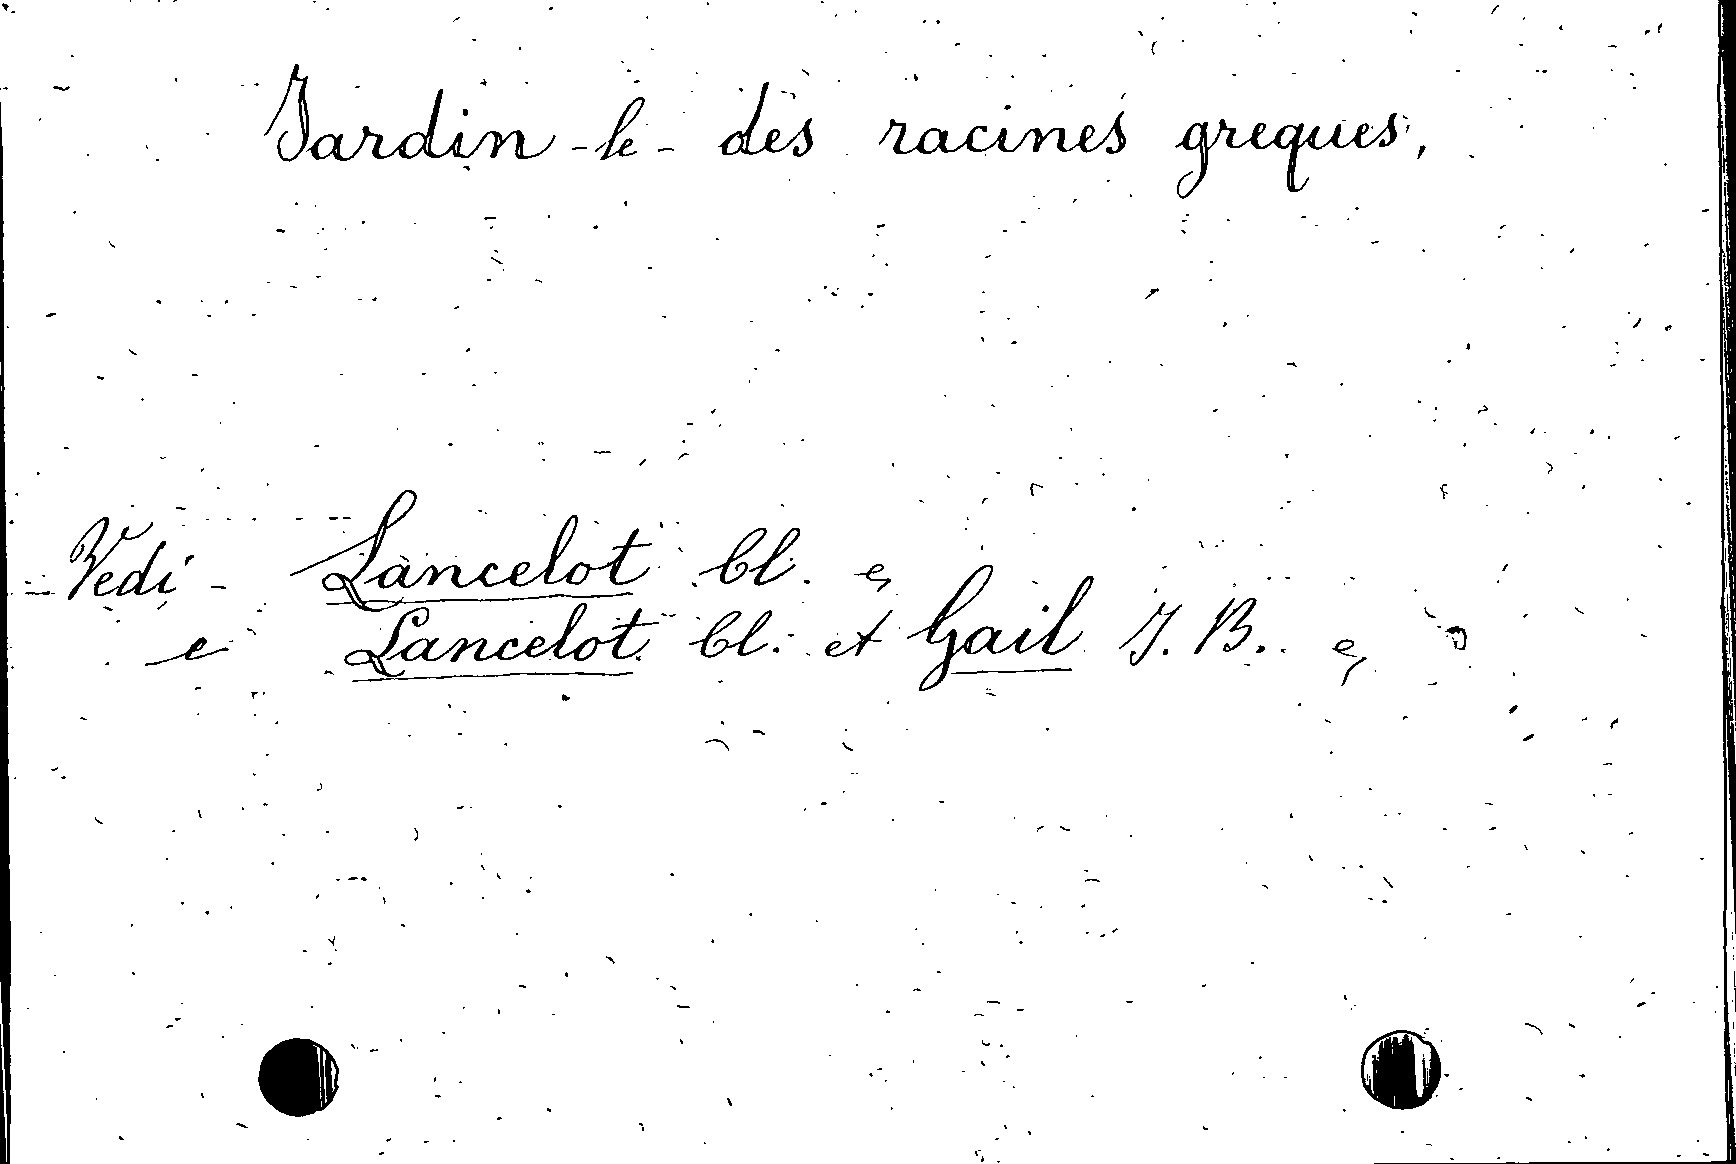 Jardin - le - des racines greques,
Vedi - Lancelot Cl. e,
e Lancelot Cl. et Gail J. B. e,